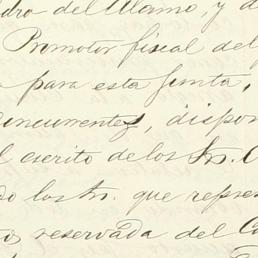 dro del Alamo, y d
Promotor fiscal del
para esta Junta,
oncurrentes, dispon
l escrito de los Sres. C
do los Sres. que repres
reservada del Ca